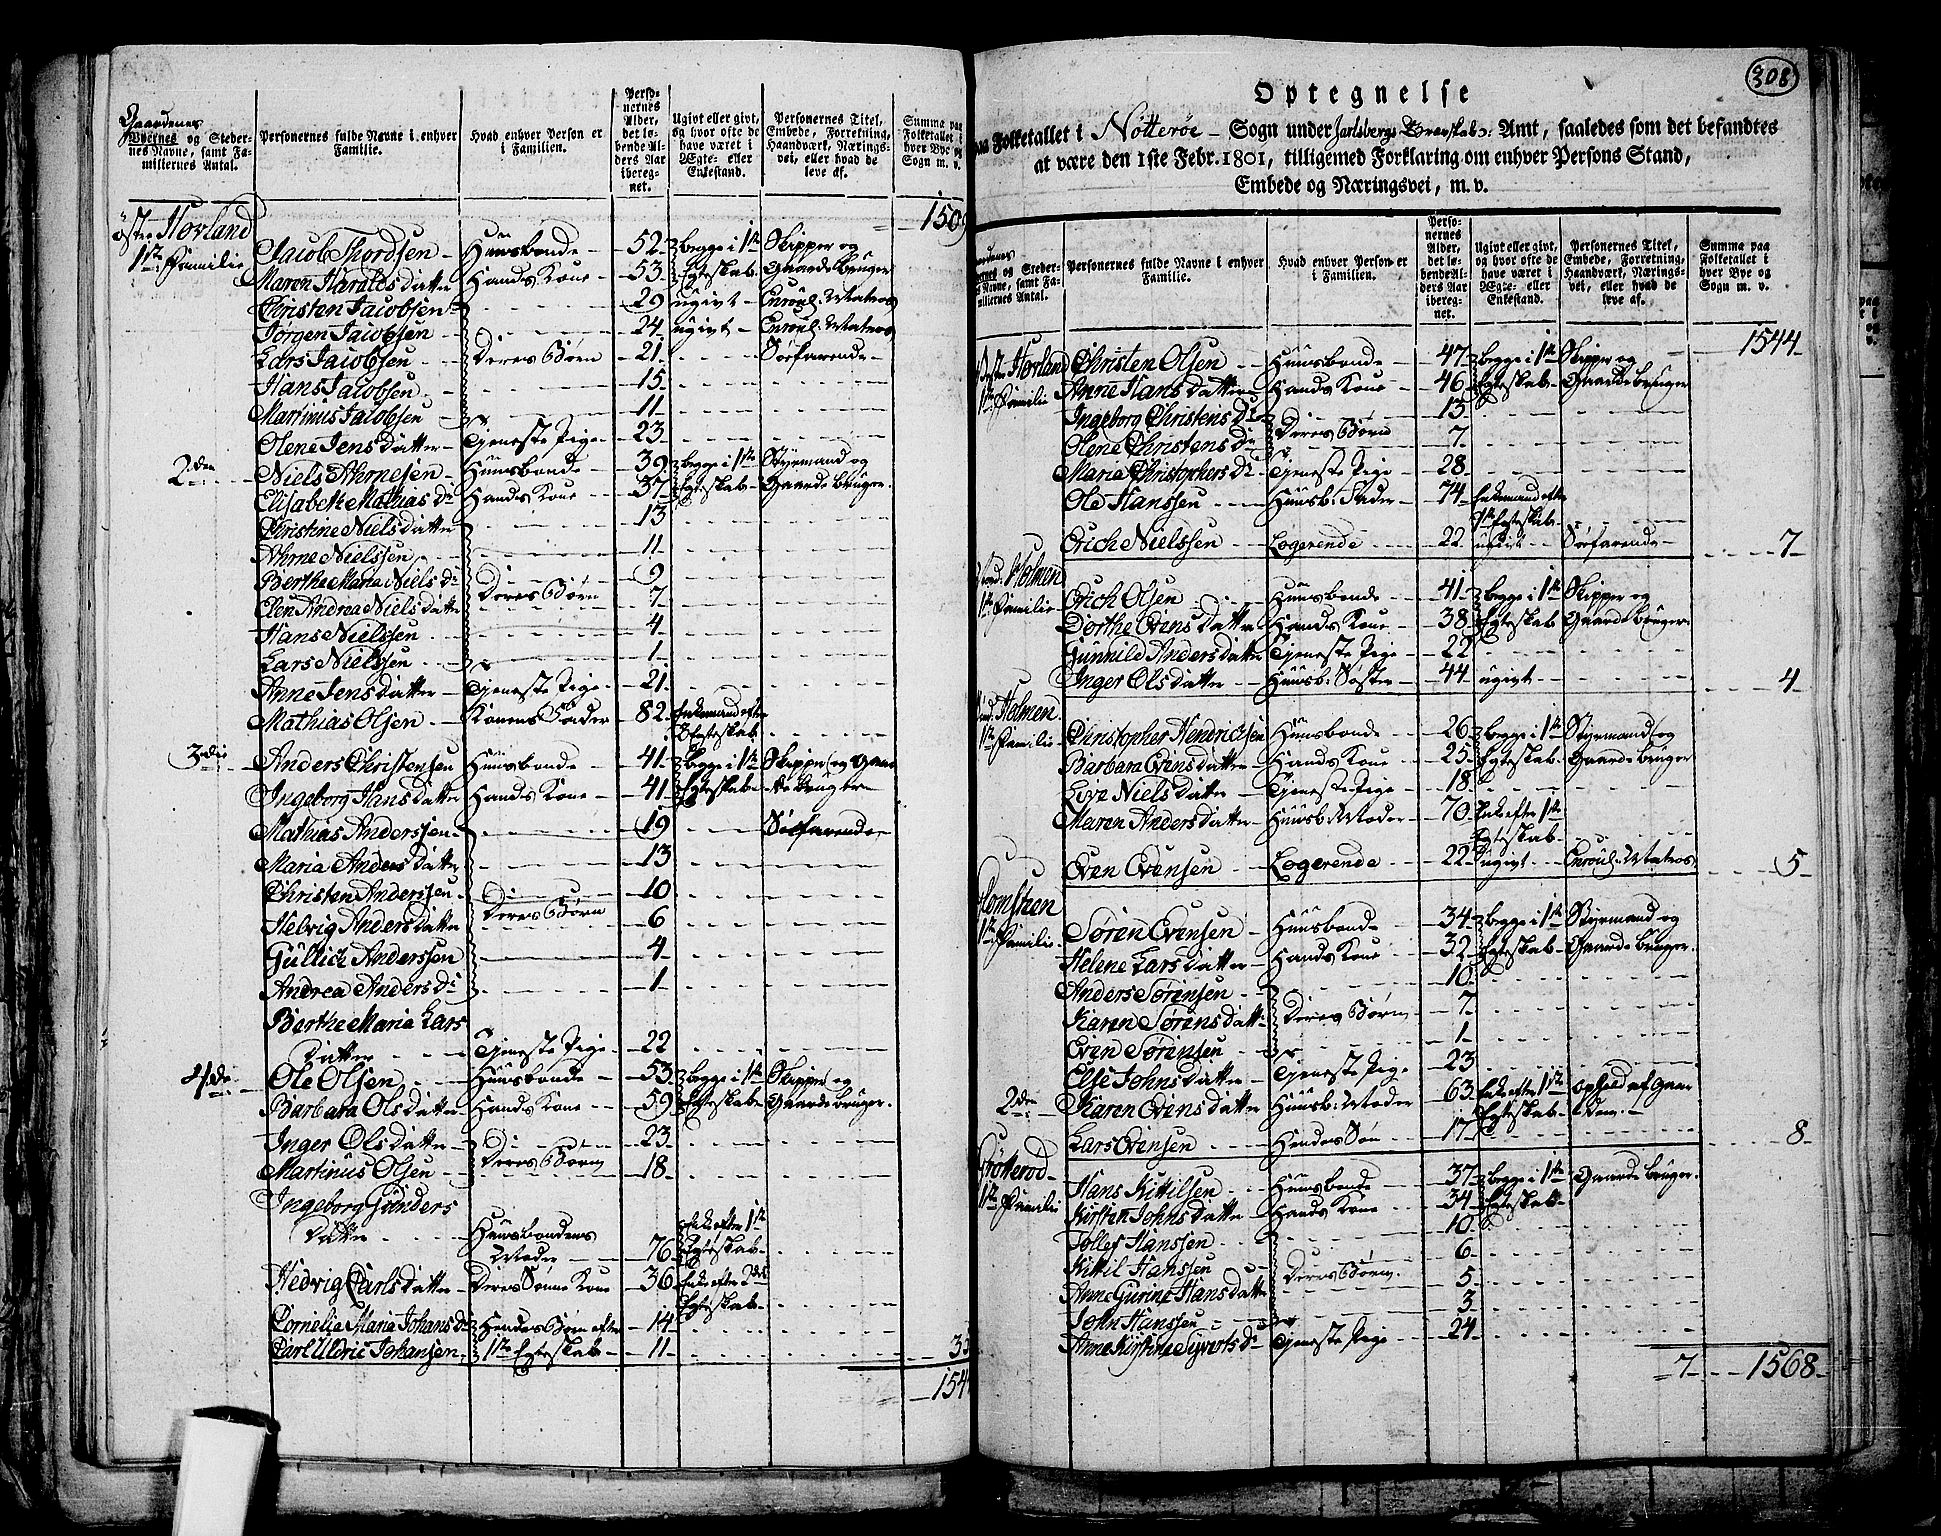 Gaardenes
Byernes og Steder-
nes Navne, samt Fa-
milliernes Antal.
Personernes fulde Navne i enhver
Familie.
Hvad enhver Person er
i Familien.
Perso-
nernes
Alder,
det lø-
bende Al-
ders Aar
ibereg-
net.
Ugivt eller givt,
og hvor ofte de
have været i
Ægte- eller
Enkestand.
Personernes Titel,
Embede, Forretning,
Haandværk, Nærings-
vei, eller hvad de
leve af.
Summa paa
Folketallet i
hver Bye og
Sogn m. v.
1509
Øster Hovland
1ste Familie Jacob Thordsen Huusbonde 52 begge i 1ste Skipper og
Maren Haralds datter Hands Kone 53 Egteskab Gaardebruger
Christen Jacobsen 29 ugivt Enroul: Matros
Jørgen Jacobsen 24 ugivt Enroul: Matros
Lars Jacobsen Deres Børn 21 Søefarende
Hans Jacobsen 15
Martinus Jacobsen 11
Olene Jens datter Tjeneste Pige 23
2den Niels Ahrnesen Huusbonde 39 begge i 1ste Styrmand og
Elisabeth Mathias Dr Hands Kone 37 Egteskab Gaardebruger
Christine Niels datter 13
Ahrne Nielssen 11
Berthe Maria Niels Dr 9
Elen Andrea Niels datter Deres Børn 7
Hans Nielssen 4
Lars Nielssen 1
Anne Jens datter Tjeneste Pige 21
Mathias Olsen Konens Fader 82 Enkemand efter
Egteskab
3die Anders Christensen Huusbonde 41 begge i 1ste Skipper og Gaar-
Ingeborg Hans datter Hands Kone 41 Egteskab debruger
Mathias Anderssen 19 Søefarende
Maria Anders datter 13
Christen Anderssen 10
Helvig Anders datter Deres Børn 6
Gullich Anderssen 4
Andrea Anders Dr 1
Berthe Maria Lars
datter Tjeneste Pige 22
4de Ole Olsen Huusbonde 53 begge i 1ste Skipper og
Barbara Ols datter Hands Kone 59 Egteskab Gaardebruger.
Inger Ols datter 23
Martinus Olsen Deres Børn 18
Ingeborg Gunders
datter Huusbondens
Moder 76 Enke efter 1ste
Egteskab
Hedvig Carls datter Deres Sønne Kone 36 Enke efter 2det
Egteskab
Cornelia Maria Johans Dr Hendes Børn efter 14
Carl Uldric Johansen 1ste Egteskab 11 35
154
308
Optegnelse
paa Folketallet i Nøtterøe Sogn under Jarlsbergs Grevskabs Amt, saaledes som det befandtes
at være den 1ste Febr. 1801, tilligemed Forklaring om enhver Persons Stand,
Embede og Næringsvei, m. v.
Gaardenes
Byernes og Steder-
nes Navne, samt Fa-
milliernes Antal.
Personernes fulde Navne i enhver
Familie.
Hvad enhver Person er
i Familien.
Perso-
nernes
Alder,
det lø-
bende Al-
ders Aar
ibereg-
net.
Ugivt eller givt,
og hvor ofte de
have været i
Ægte- eller
Enkestand.
Personernes Titel,
Embede, Forretning,
Haandværk, Nærings-
vei, eller hvad de
leve af.
Summa paa
Folketallet i
hver Bye og
Sogn m. v.
1544
Hovland Christen Olsen Huusbonde 47 begge i 1ste Skipper og
1ste Familie Anne Hans datter Hands Kone 46 Egteskab Gaardebruger
Ingeborg Christens Dr 13
Olene Christens Dr Deres Børn 7
Maria Christophers Dr Tjeneste Pige 28
Ole Hanssen Huusb: Fader 74 Enkemand efter
1ste Egteskab
Erich Nielssen Logerende 22 ugivt Søefarende 7
Holmen
1ste Familie Erich Olsen Huusbonde 41 begge i 1ste Skipper og
Dorthe Evens datter Hands Kone 38 Egteskab Gaardebruger
Gunnild Anders datter Tjeneste Pige 22
Inger Ols datter Huusb: Søster 44 ugivt 4
Holmen
1ste Familie Christopher Hendrichsen Huusbonde 26 begge i 1ste Styrmand og
Barbara Evens datter Hands Kone 25 Egteskab Gaardebruger
Live Niels datter Tjeneste Pige 18
Maren Anders datter Huusb: Moder 70 Enke efter 1ste
Egteskab
Even Evensen Logerende 22 ugivt Enroul: Matros 5
1ste Familie Søren Evensen Huusbonde 34 begge i 1ste Styrmand og
Helene Lars datter Hands Kone 32 Egteskab Gaardebruger
Anders Sørensen 10
Karen Sørens datter Deres Børn 7
Even Sørensen 1
Else Johns datter Tjeneste Pige 23
2den Karen Evens datter Huusb: Moder 63 Enke efter 1ste ophold af Gaar-
Egteskab den
Lars Evensen Hendes Søn 17 8
1ste Familie Hans Kittilsen Huusbonde 37 begge i 1ste Gaardebruger
Kirsten Johns datter Hands Kone 34 Egteskab
Tollef Hanssen 10
Kittil Hanssen 6
Anne Gurine Hans datter Deres Børn 5
John Hanssen 3
Anne Kirstine Syverts Dr Tjeneste Pige 24
7 1568